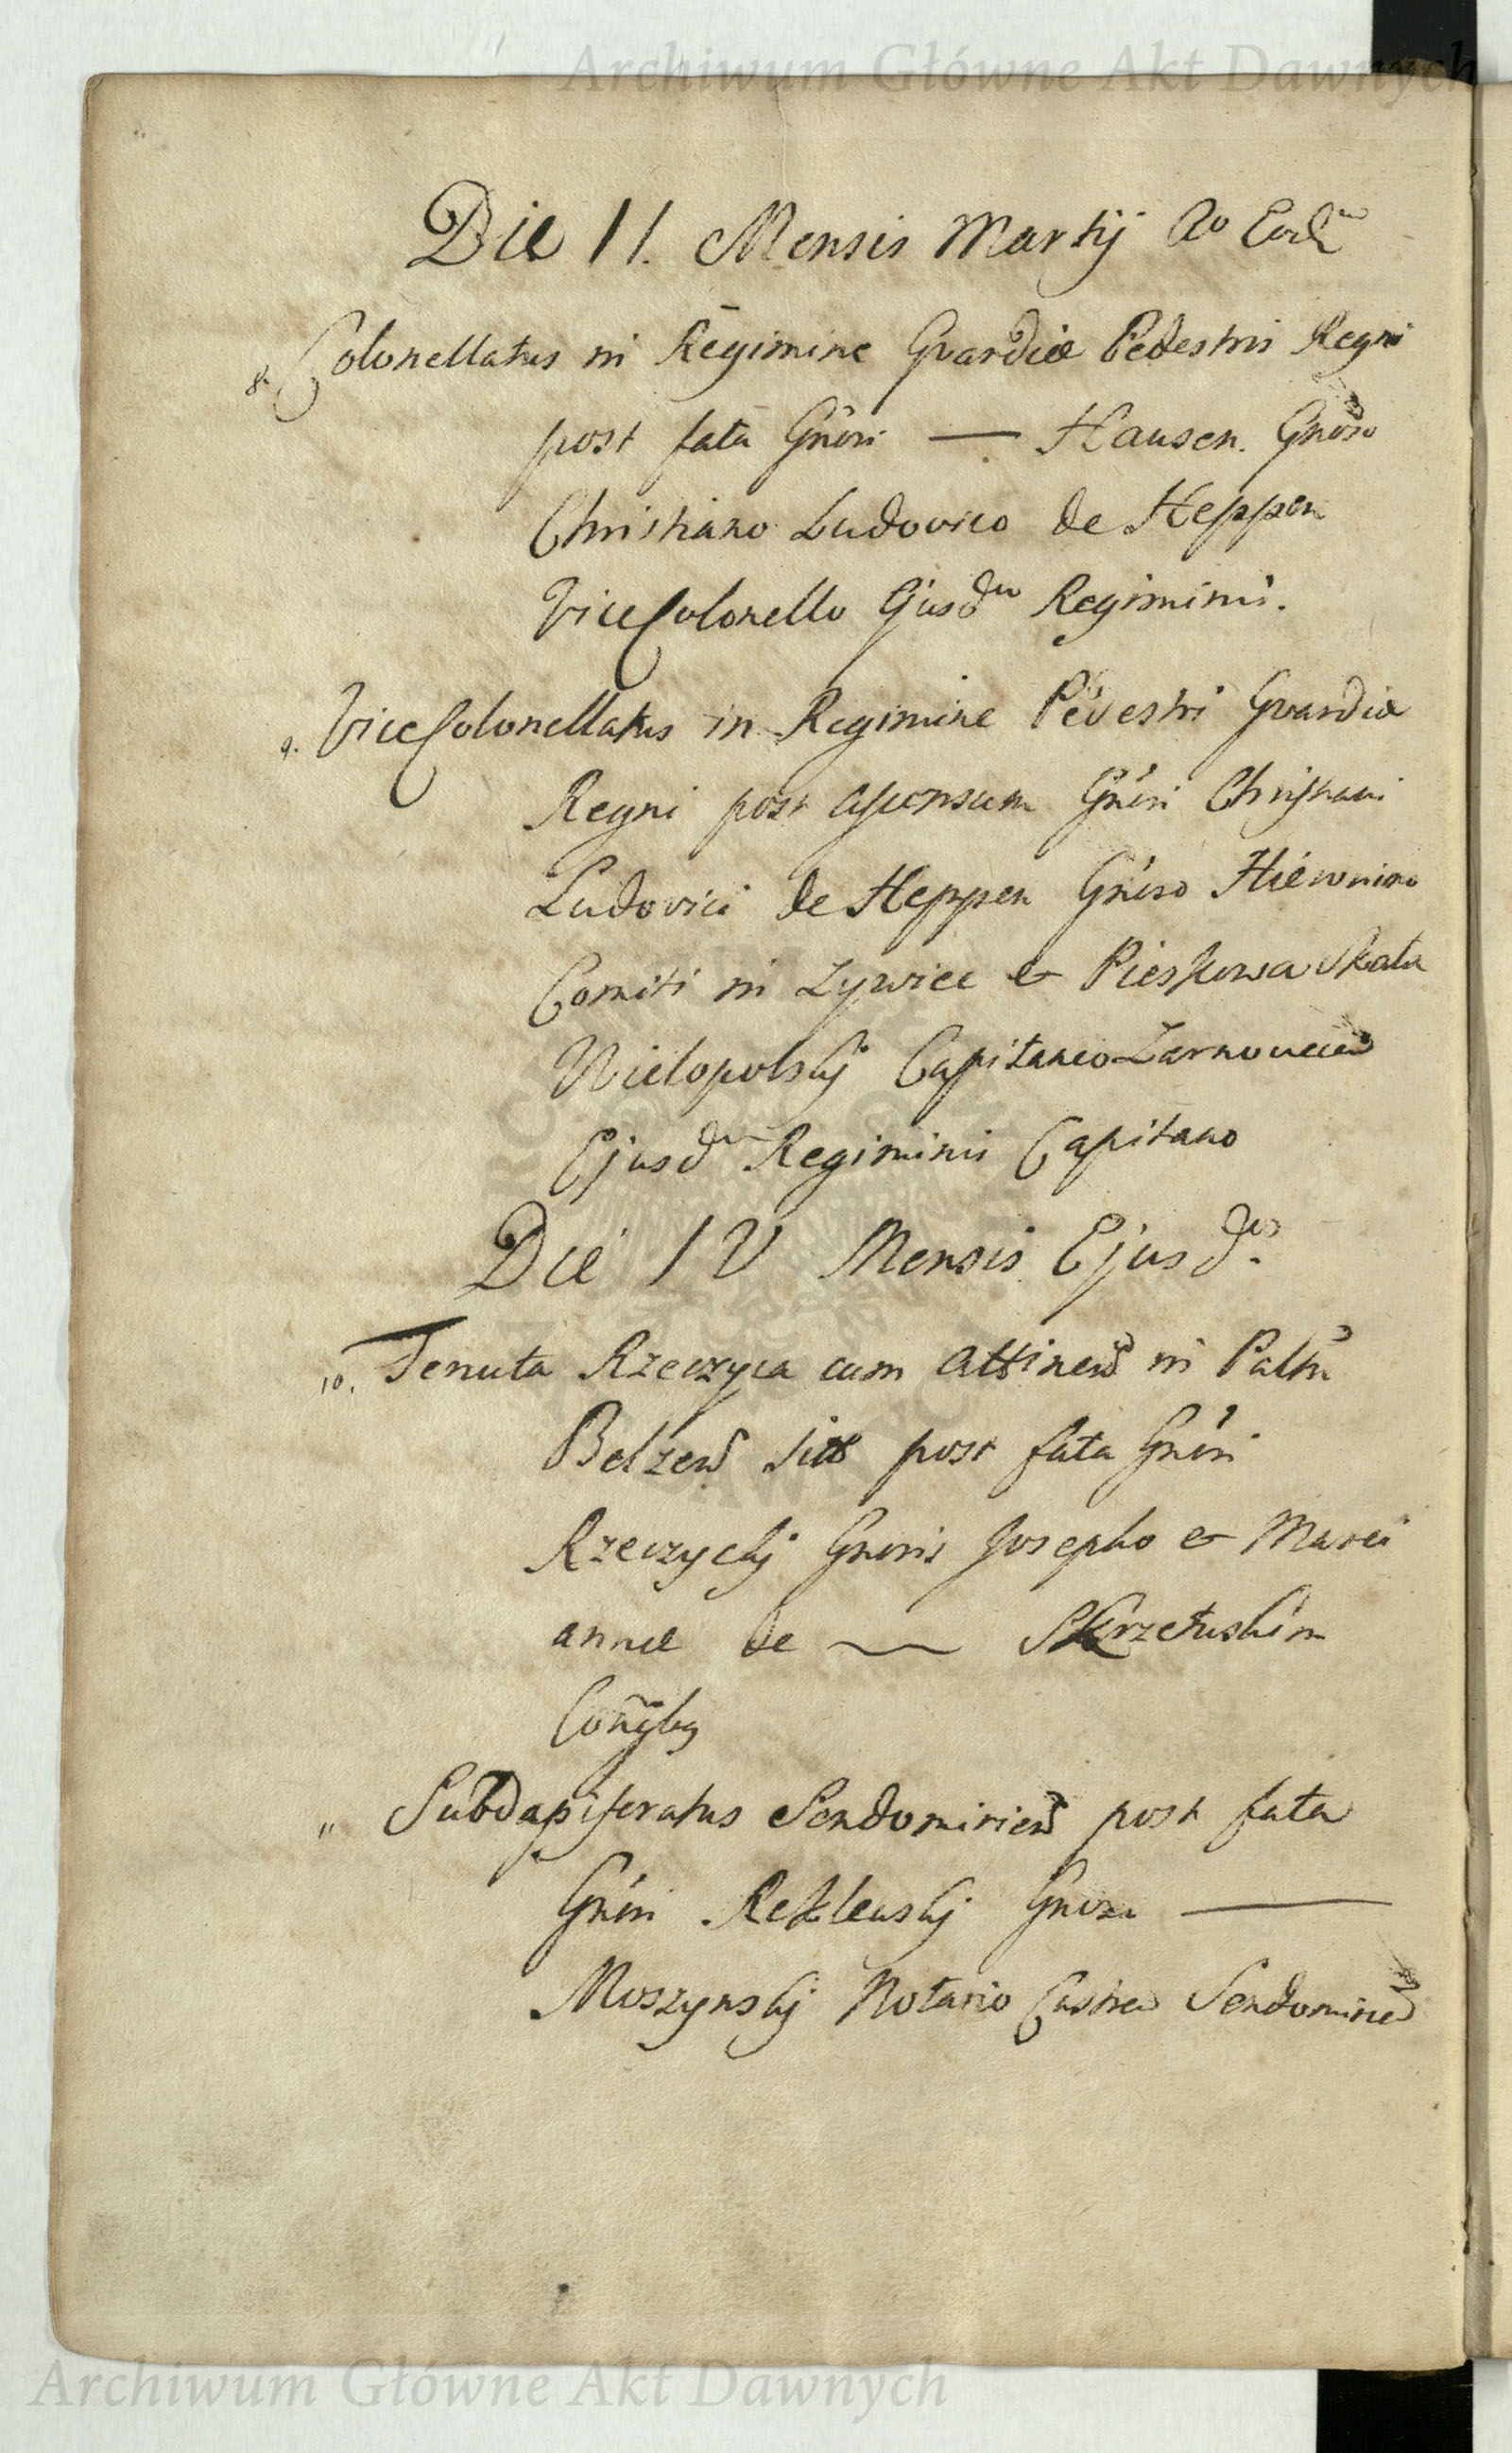 Archiwum Główne Akt Dawnych
Die 11. Mensis Martij Ao Eodm
8. Colonellatus in Regimine Gvardiæ Pedestris Regni
post fata Gnosi — Hausen. Gnoso
Christiano Ludovico de Heppen
ViceColonello Ejusdm Regiminis.
9. ViceColonellatus in Regimine Pedestri Gvardiæ
Regni post ascensum Gnosi Christiani
Ludovici de Heppen Gnoso Hieronimo
Comiti in Zywiec & Pieskowa Skała
Wielopolskj Capitaneo Zarnovecen
Ejusdm Regiminis Capitano
Die IV Mensis Ejusdm.
10. Tenuta Rzeczyca cum attinens in Palttu
Belzens sitt post fata Gnosi
Rzeczyckj Gnosis Josepho & Mari
annæ de — Skrzetuskim
Conjbs
11 Subdapiferatus Sendomiriens post fata
Gnosi Reklewskj Gnoso —
Moszynskj Notario Castren Sendomirien
Archiwum Główne Akt Dawnych